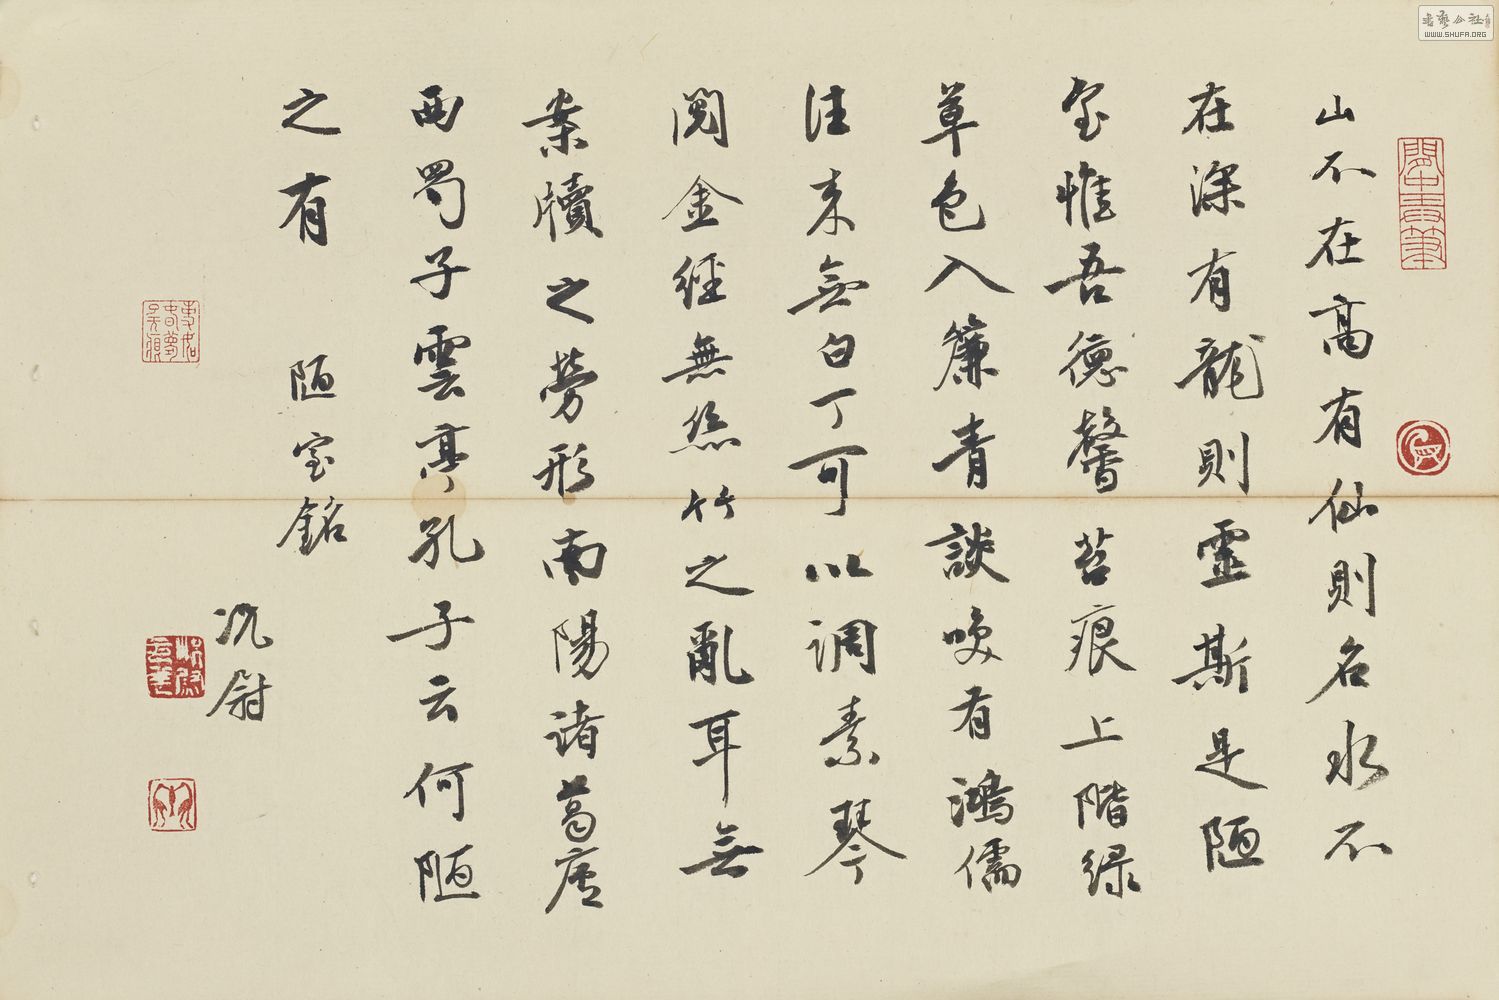 山不在高有仙則名水不
在深有龍則靈斯是陋
室惟吾德馨苔痕上階綠
草色入簾青談咲有鴻儒
往来無白丁可以調素琴
閱金經無絲竹之亂耳無
案牘之勞形南陽諸葛廬
西蜀子雲亭孔子云何陋
之有 陋室銘
况尉
書藝公社
WWW.SHUFA.ORG